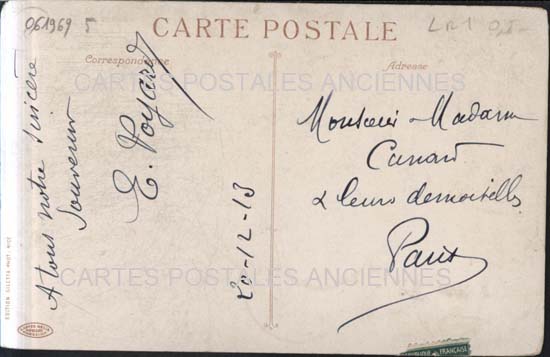 061969 5
LR1
CARTE POSTALE
Correspondance
Adresse
CARTES POSTALES ANCIENNES
A tous notre sincère
souvenir
E. Poyard
20-12-13
Monsieur Madame
Canard
& leurs demoiselles
Paris
CARTES POSTALES ANCIENNES
EDITION GILETTA PHOT. NICE
FRANÇAISE